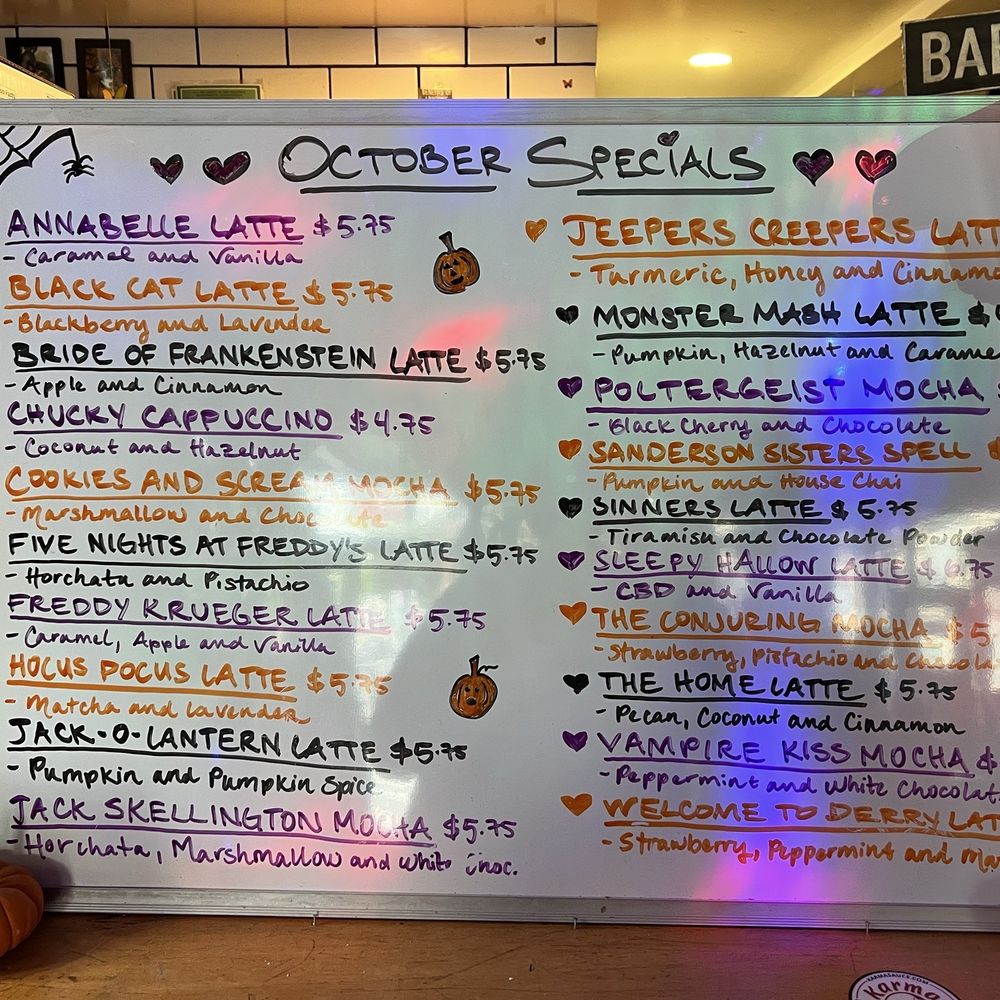 BAR
OCTOBER SPECIALS
ANNABELLE LATTE $5.75
- Caramel and Vanilla
BLACK CAT LATTE $5.75
- Blackberry and Lavender
BRIDE OF FRANKENSTEIN LATTE $5.75
- Apple and Cinnamon
CHUCKY CAPPUCCINO $4.75
- Coconut and Hazelnut
COOKIES AND SCREAM MOCHA $5.75
- Marshmallow and Chocolate
FIVE NIGHTS AT FREDDY'S LATTE $5.75
- Horchata and Pistachio
FREDDY KRUEGER LATTE $5.75
- Caramel, Apple and Vanilla
HOCUS POCUS LATTE $5.75
- Matcha and Lavender
JACK-O-LANTERN LATTE $5.75
- Pumpkin and Pumpkin Spice
JACK SKELLINGTON MOCHA $5.75
- Horchata, Marshmallow and White Choc.
JEEPERS CREEPERS LATT
- Turmeric, Honey and Cinnamo
MONSTER MASH LATTE $
- Pumpkin, Hazelnut and Carame
POLTERGEIST MOCHA
- Black Cherry and Chocolate
SANDERSON SISTERS SPELL $
- Pumpkin and House Chai
SINNERS LATTE $5.75
- Tiramisu and Chocolate Powder
SLEEPY HALLOW LATTE $6.75
- CBD and Vanilla
THE CONJURING MOCHA $5
- Strawberry, Pistachio and Chocola
THE HOME LATTE $5.75
- Pecan, Coconut and Cinnamon
VAMPIRE KISS MOCHA $
- Peppermint and White Chocolat
WELCOME TO DERRY LAT
- Strawberry, Peppermint and Ma
KARMASAUCE.COM
Karma